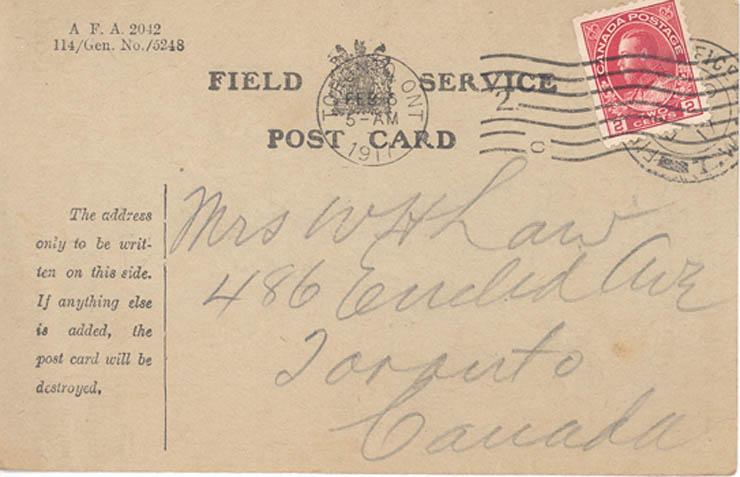 A F. A. 2042
114/Gen. No./5248
FIELD SERVICE
POST CARD
TORONTO ONT
FEB 6
5-AM
1917
2
C
CANADA POSTAGE
2 TWO CENTS 2
The address
only to be writ-
ten on this side.
If anything else
is added, the
post card will be
destroyed.
Mrs W H Law
486 Euclid Ave
Toronto
Canada